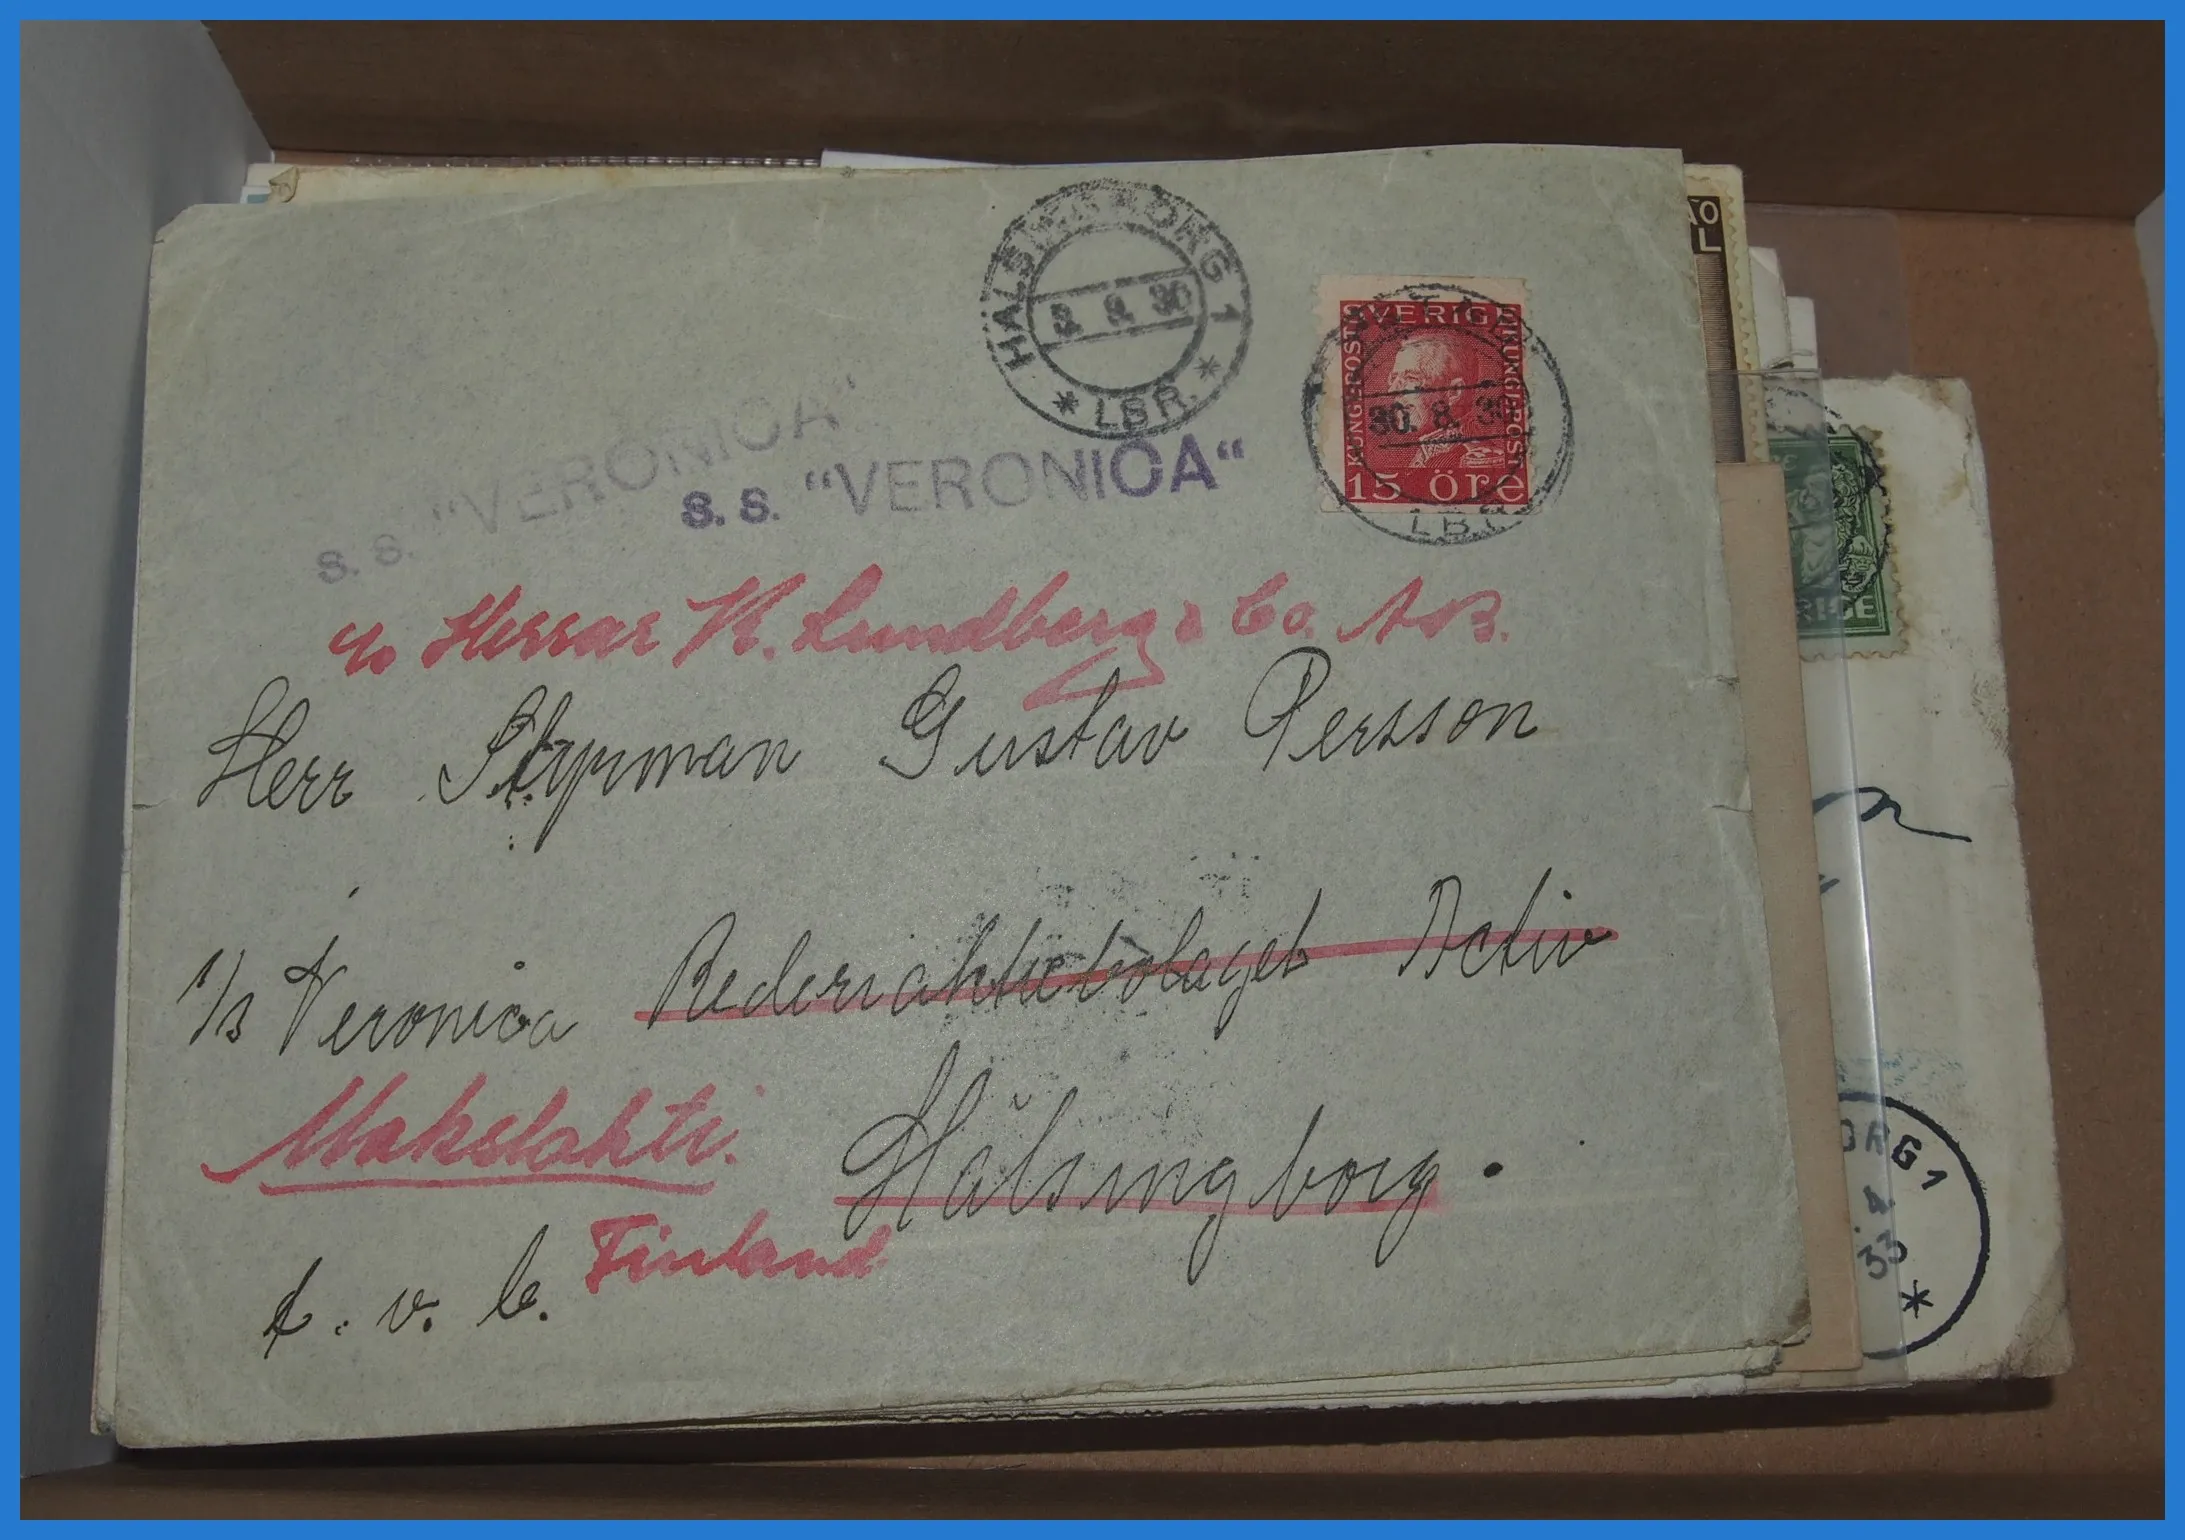 HÄLSINGBORG 1
3. 9. 30
* LBR. *
SVERIGE
KUNGL. POST
15 öre
30. 8. 30
LBR
S. S. "VERONICA"
S. S. "VERONICA"
c/o Herrar K. Lundberg & Co. A.B.
Herr Styrman Gustav Persson
Veronica Rederiaktiebolaget Activ
Makslahti.
Hälsingborg.
f. v. b.
Finland
ÃO
L
RIGE
ORG 1
4.
33
*